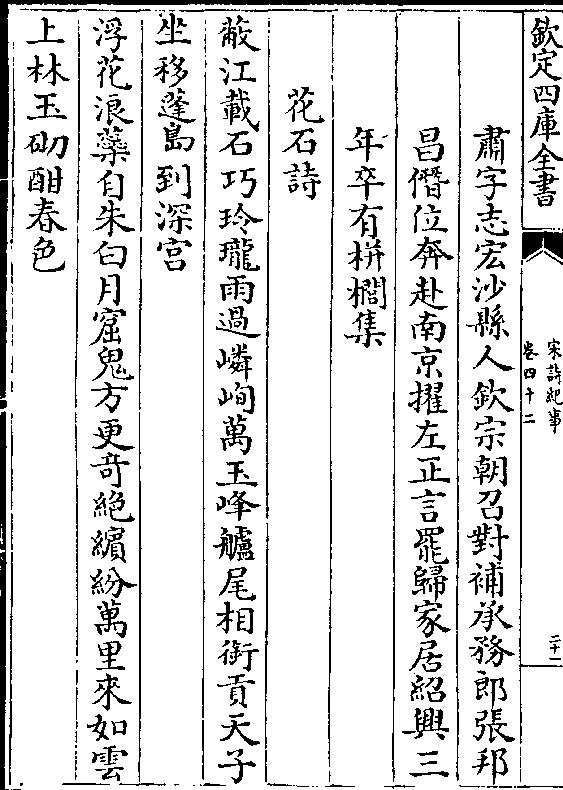 欽定四庫全書
宋詩紀事
卷四十二
二十一
肅字志宏沙縣人欽宗朝召對補承務郎張邦
昌僭位奔赴南京擢左正言罷歸家居紹興三
年卒有栟櫚集
花石詩
蔽江載石巧玲瓏雨過嶙峋萬玉峰艫尾相銜貢天子
坐移蓬島到深宫
浮花浪蘂自朱白月窟鬼方更竒絶繽紛萬里來如雲
上林玉砌酣春色